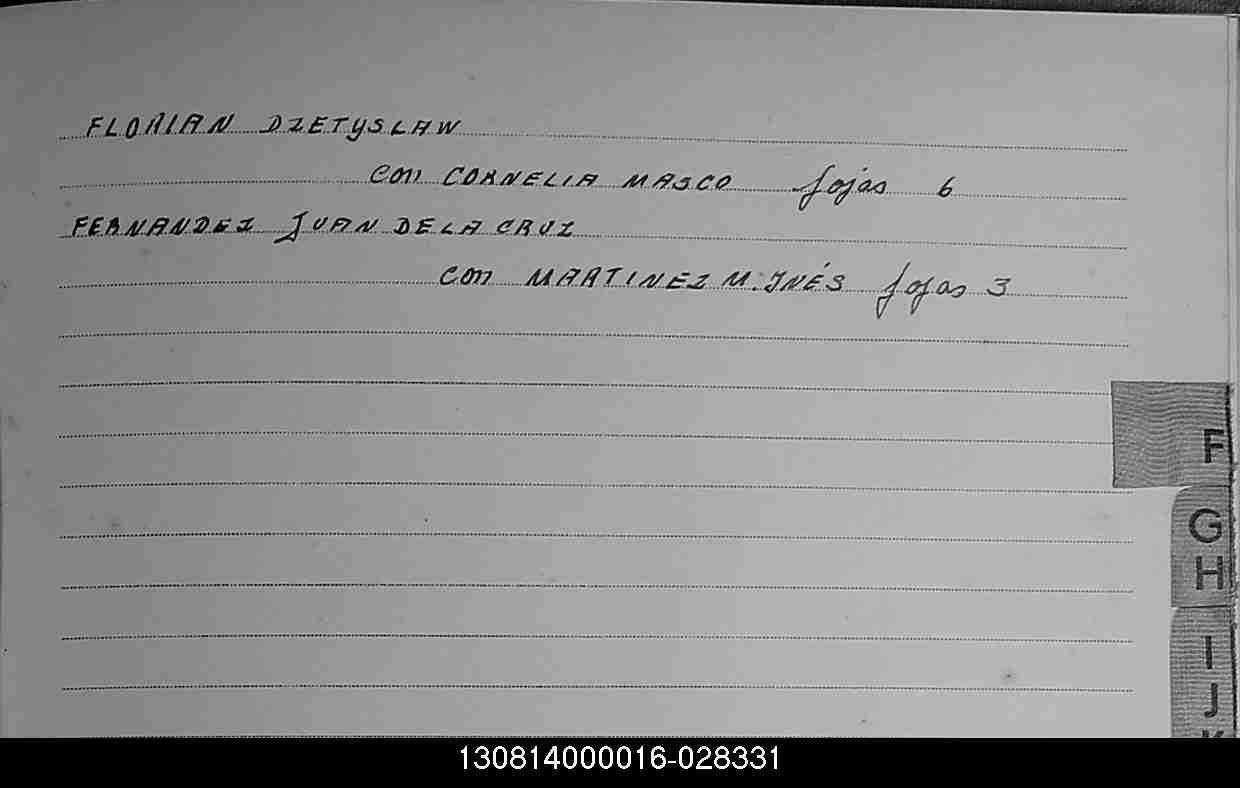 FLORIAN DZETYSLAW
con CORNELIA MASCO fojas 6
FERNANDEZ JUAN DE LA CRUZ
con MARTINEZ M. INÉS fojas 3
F
G
H
I
J
K
130814000016-028331